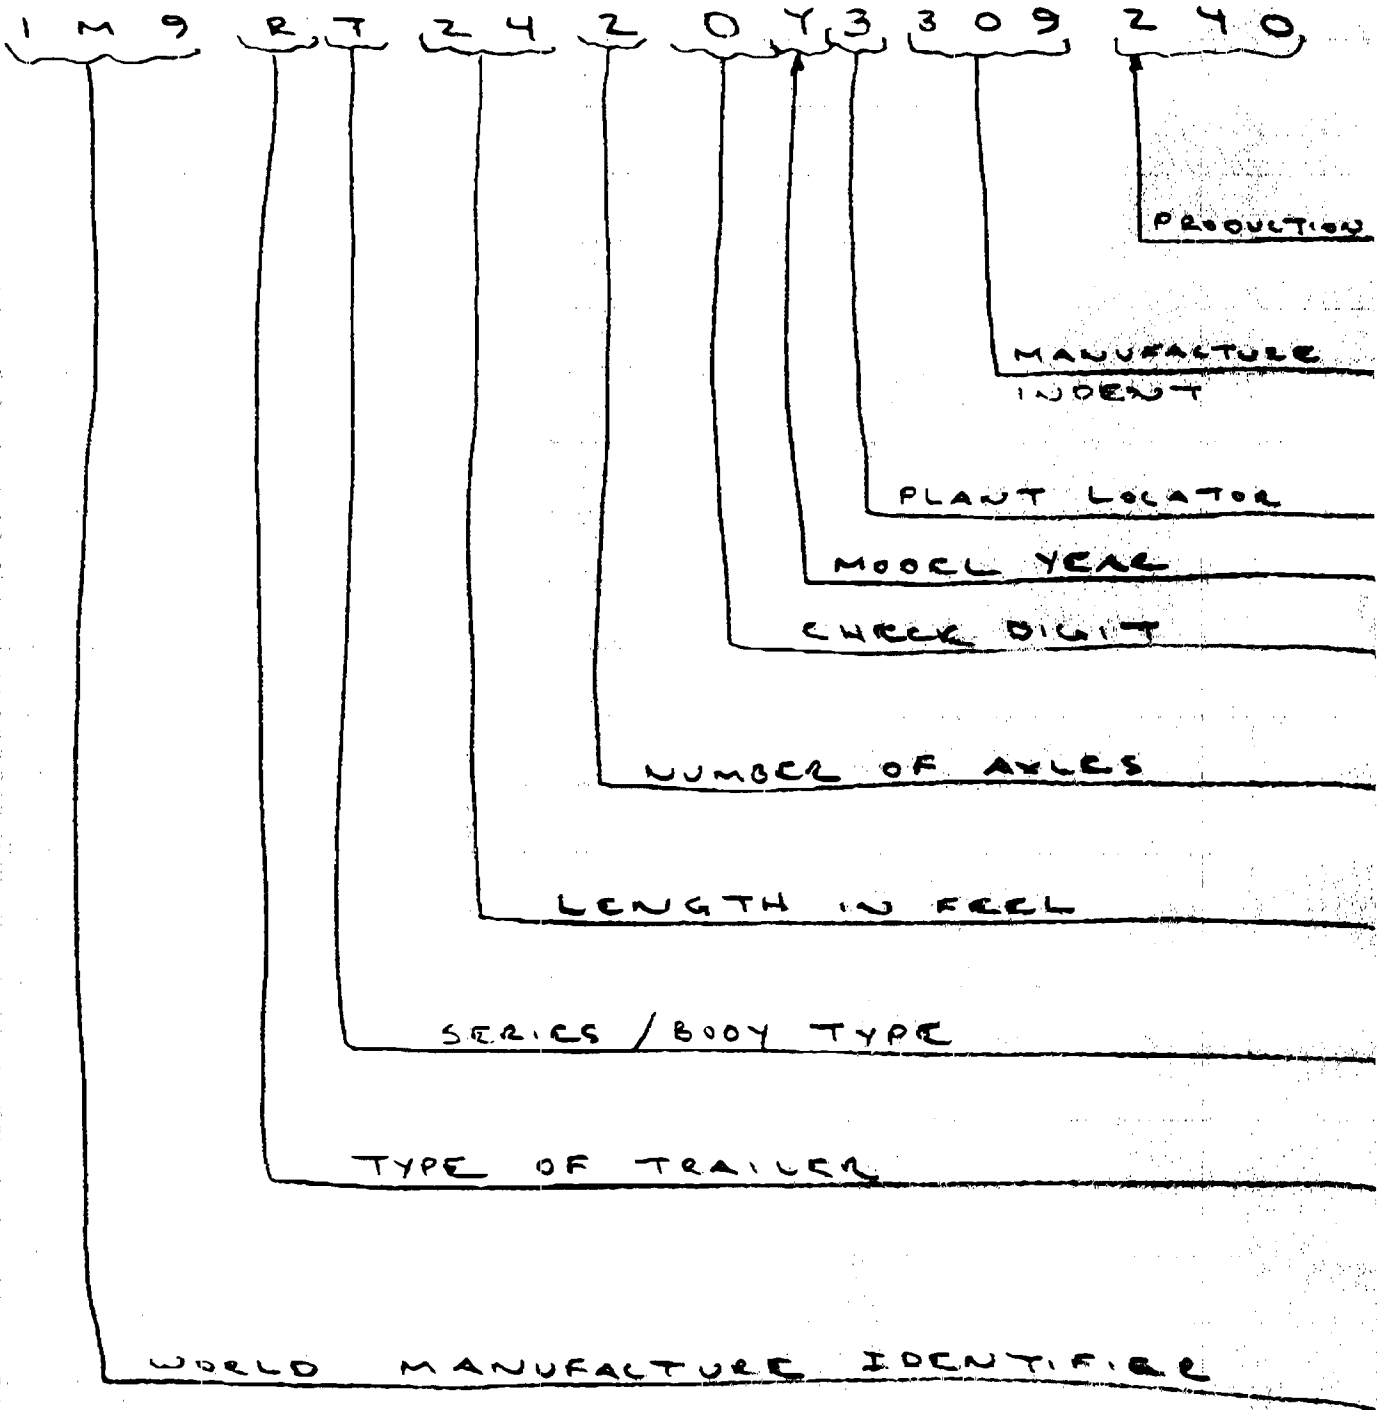 1 M 9 R T 2 4 2 0 Y 3 3 0 9 2 4 0
PRODUCTION
MANUFACTURE
INDENT
PLANT LOCATOR
MODEL YEAR
CHECK DIGIT
NUMBER OF AXLES
LENGTH IN FEEL
SERIES / BODY TYPE
TYPE OF TRAILER
WORLD MANUFACTURE IDENTIFIER